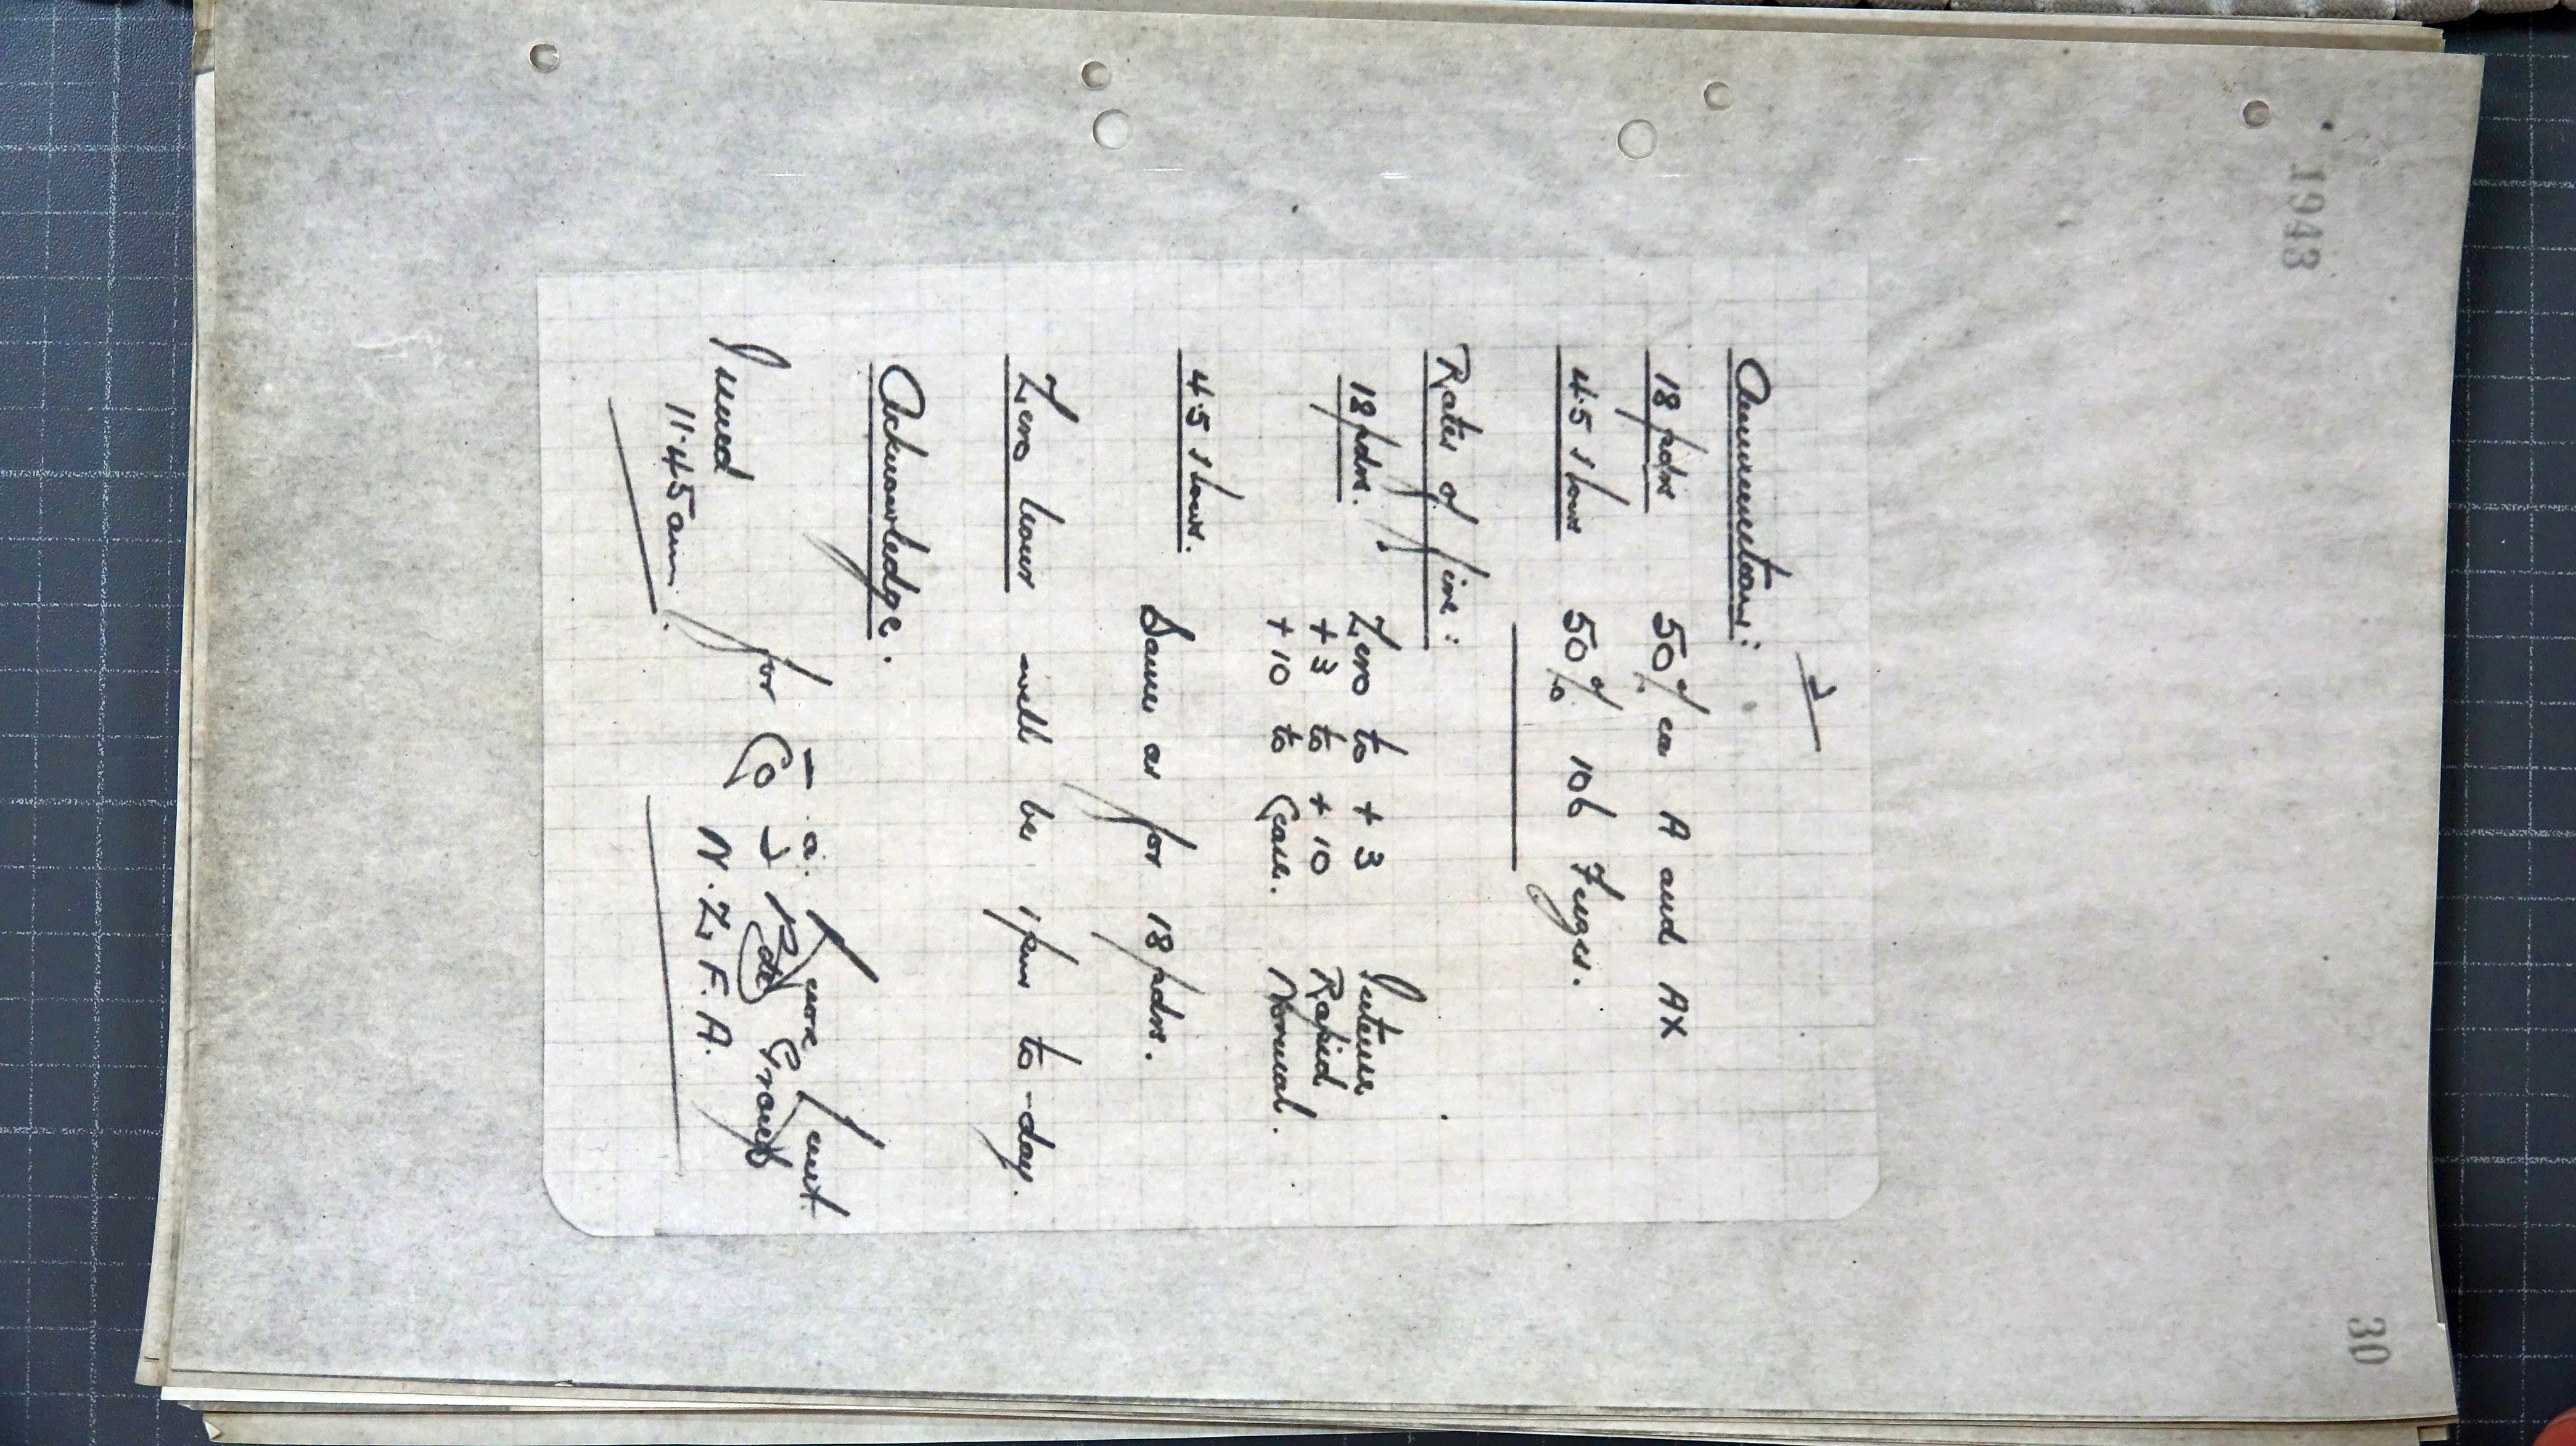 1943
30
2
Ammunition:
18 pdrs 50% ea A and AX
4.5 Hows 50% 106 Fuzes.
Rates of fire:
18 pdrs. Zero to + 3 Intense
+ 3 to + 10 Rapid
+ 10 to Cease. Normal.
4.5 Hows. Same as for 18 pdrs.
Zero hour will be 1 pm to-day.
Acknowledge.
Lieut
Issued for Group
11.45 am. N.Z.F.A.